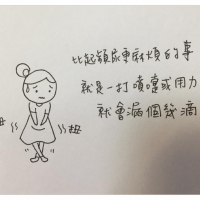 比起頻尿更麻煩的事
就是一打噴嚏或用力
就會漏個幾滴
扭
扭